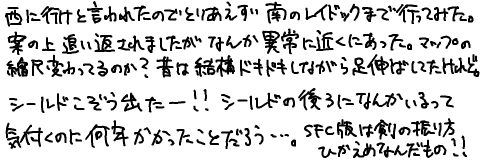 西に行けと言われたのでとりあえず南のレイドックまで行ってみた。
案の上追い返されましたがなんか異常に近くにあった。マップの
縮尺変わってるのか？昔は結構ドキドキしながら足伸ばしてたけれど。
シールドこぞう出たー!!シールドの後ろになんかいるって
気付くのに何年かかったことだろう…。SFC版は剣の振り方
ひかえめなんだもの!!